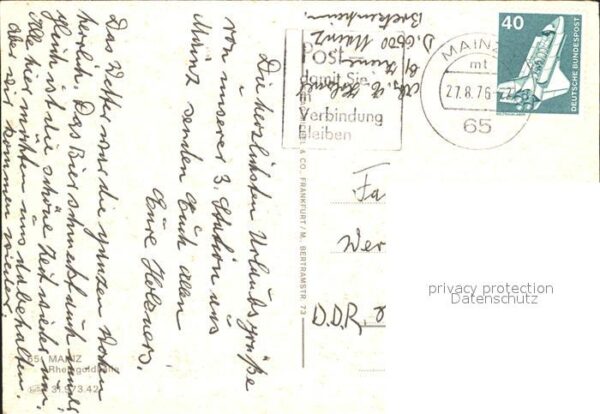 Die herzlichsten Urlaubsgrüße
von unserer 3. Station aus
Mainz senden Euch allen
Eure Holzners.
Das Wetter war die ganzen Wochen
herrlich. Das Bier schmeckt auch und
gleich ist die schöne Zeit wieder um.
Alle hier möchten uns dabehalten.
wir kommen wieder.
Abs.
D. 6500 Mainz
Post –
damit Sie
in
Verbindung
bleiben
MAINZ
mt
27.8.76
65
40
DEUTSCHE BUNDESPOST
& CO., FRANKFURT/M. BERTRAMSTR. 73
Fa
Wer
D.D.R.
privacy protection
Datenschutz
65 MAINZ
Rheingoldhalle
31.973.42